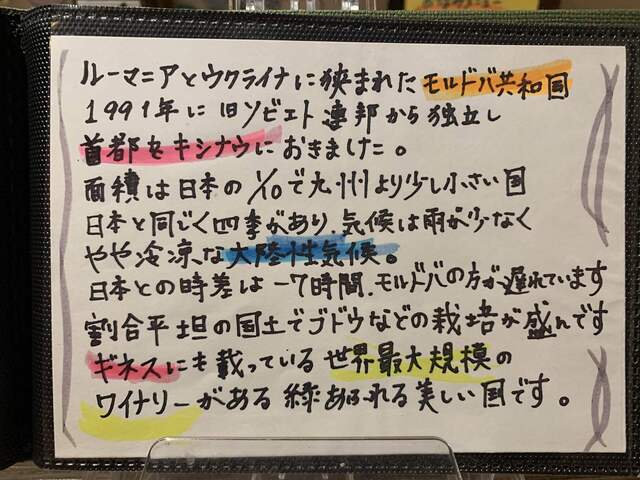 ルーマニアとウクライナに狭まれたモルドバ共和国
1991年に旧ソビエト連邦から独立し
首都をキシナウにおきました。
面積は日本の1/10で九州より少し小さい国
日本と同じく四季があり、気候は雨が少なく
やや冷涼な大陸性気候。
日本との時差は-7時間、モルドバの方が遅れています
割合平坦の国土でブドウなどの栽培が盛んです
ギネスにも載っている世界最大規模の
ワイナリーがある緑あふれる美しい国です。